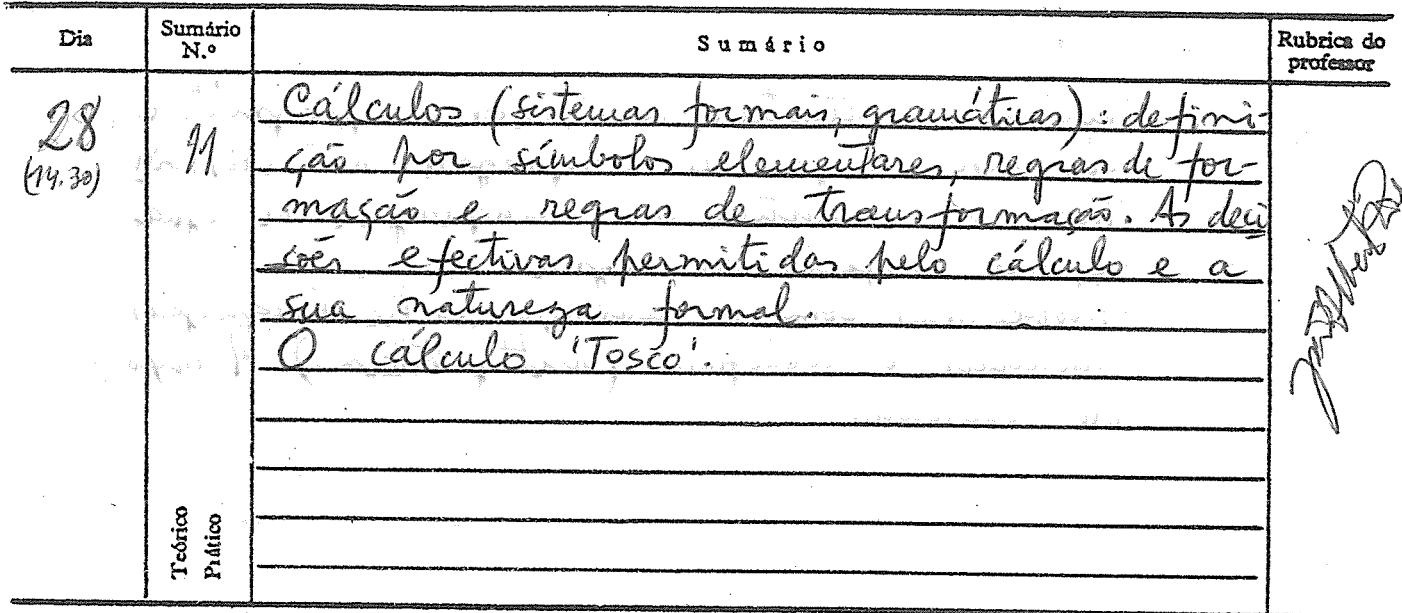 Dia
Sumário N.º
Sumário
Rubrica do professor
28
(14.30)
11
Cálculos (sistemas formais, gramáticas): defini-
ção por símbolos elementares, regras de for-
mação e regras de transformação. As deci
sões efectivas permitidas pelo cálculo e a
sua natureza formal.
O cálculo 'Tosco'.
Teórico
Prático